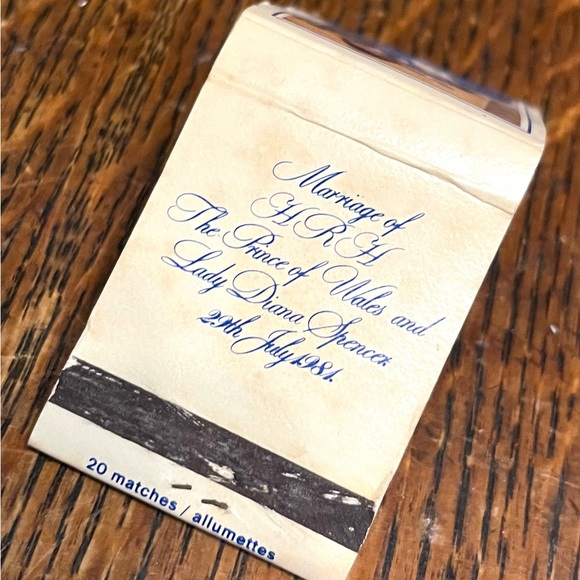 Marriage of
H R H
The Prince of Wales and
Lady Diana Spencer.
29th July 1981.
20 matches / allumettes